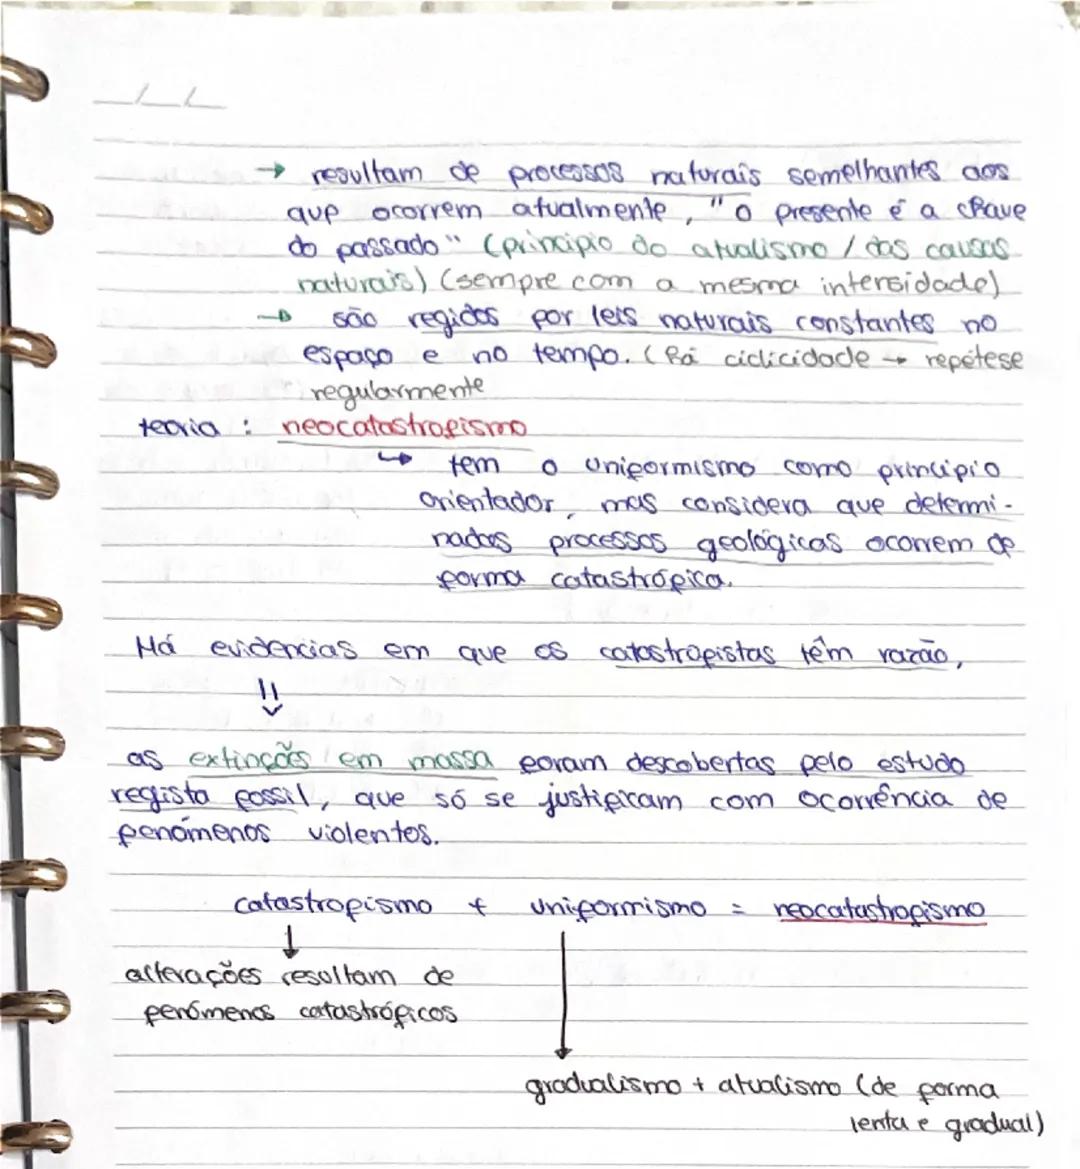 → resultam de processos naturais semelhantes aos
que ocorrem atualmente, "o presente é a chave
do passado" (princípio do atualismo / das causas
naturais) (sempre com a mesma intensidade)
→ são regidos por leis naturais constantes no
espaço e no tempo. (há ciclicidade → repétese
regularmente
teoria : neocatastrofismo
↳ tem o uniformismo como princípio
orientador, mas considera que determi-
nados processos geológicos ocorrem de
forma catastrófica.
Há evidências em que os catastrofistas têm razão,
as extinções em massa foram descobertas pelo estudo
registo fossil, que só se justificam com ocorrência de
fenómenos violentos.
catastrofismo + uniformismo = neocatastrofismo
alterações resultam de
fenómenos catastróficos
gradualismo + atualismo (de forma
lenta e gradual)